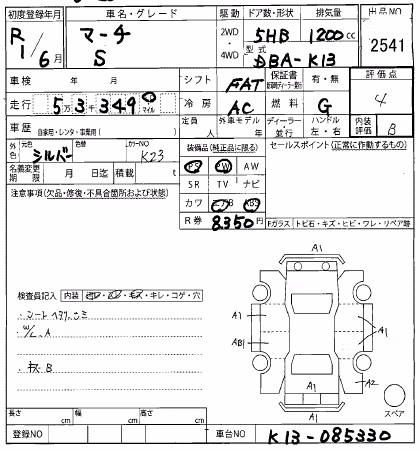 初度登録年月 車名・グレード 駆動 ドア数・形状 排気量 出品NO
R1/6月 マーチ 2WD・4WD 5HB 1200cc 2541
S 型式 DBA-K13
車検 年 月 シフト FAT 保証書 有・無 評価点
走行 5万3千349 マイル 冷房 AC 燃料 G 4
車歴 自家用・レンタ・事業用( ) 定員 人 外車モデル 年 ディーラー・並行 ハンドル 左・右 内装評価 B
外色 元色 シルバー 色替 カラーNO K23 装備品(純正品に限る) セールスポイント(正常に作動するもの)
PS PW AW
名義変更期限 月 日迄 積載 t SR TV ナビ
注意事項(欠品・修復・不具合箇所および状態) カワ エアB ABS
R券 8350円 Fガラス トビ石・キズ・ヒビ・ワレ・リペア跡
A1
検査員記入 内装 キレ・コゲ・穴
A1 A1
W/L.A AB1
B A2
A1
スペア
長さ cm 幅 cm 高さ cm A1
登録NO 車台NO K13-085330